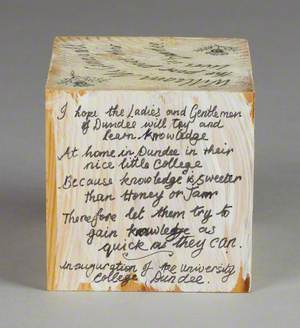 I hope the Ladies and Gentlemen
of Dundee will try and
learn knowledge
At home in Dundee in their
nice little College
Because knowledge is sweeter
than Honey or Jam
Therefore let them try to
gain knowledge as
quick as they can.
Inauguration of the University
College Dundee.